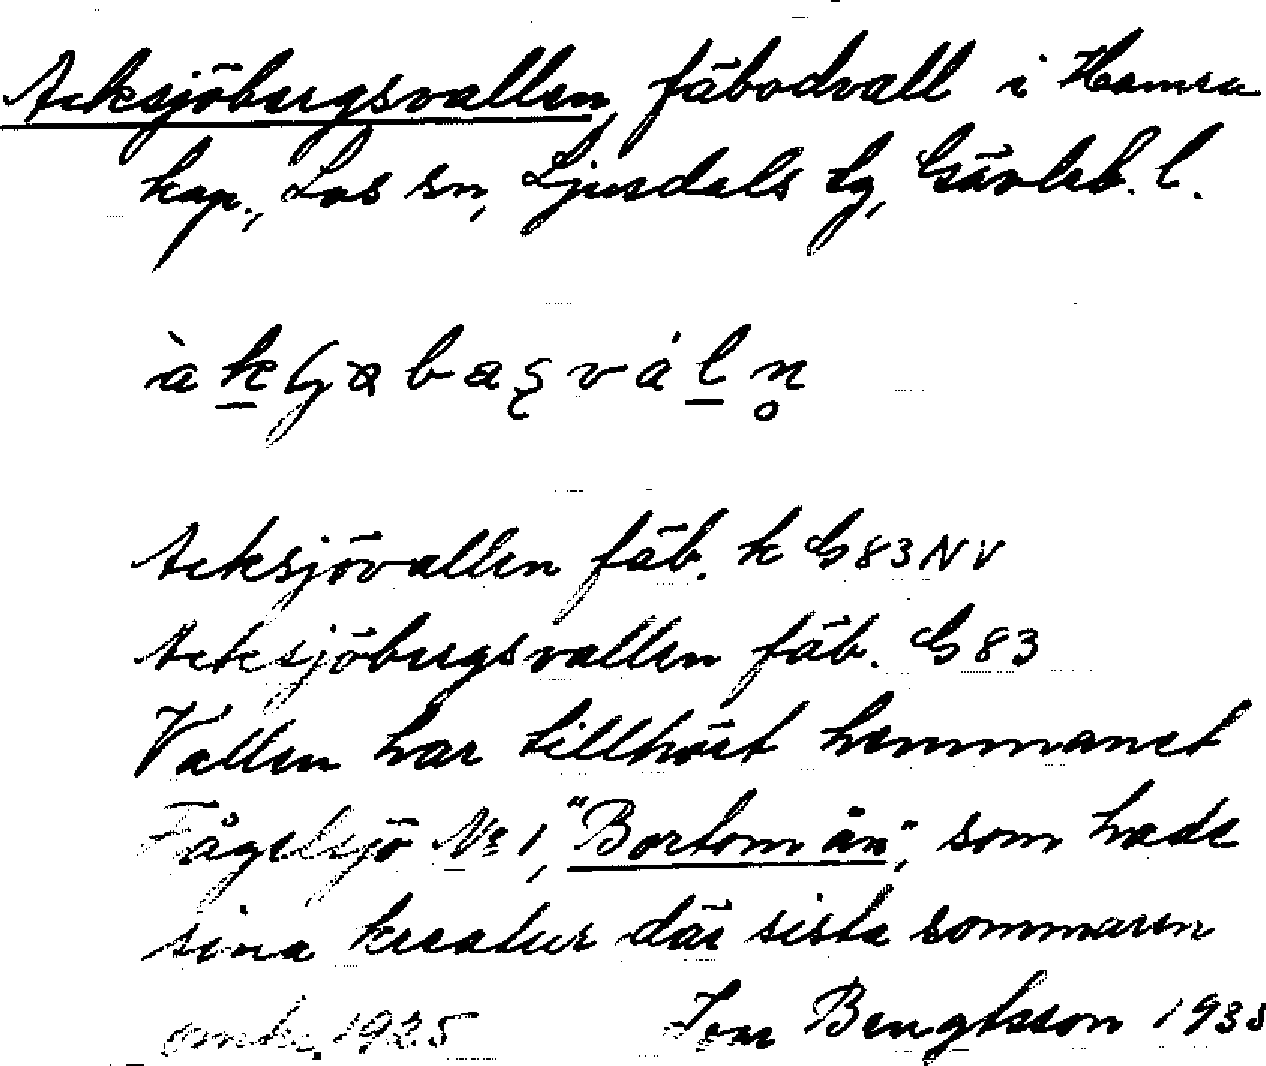 Acksjöbergsvallen, fäbodvall i Hamra
kap., Los sn, Ljusdals tg, Gävleb. l.
Acksjövallen fäb. k G83NV
Acksjöbergsvallen fäb. G83
Vallen har tillhört hemmanet
Fågelsjö No 1, "Bortom ån", som hade
sina kreatur där sista sommaren
omkr. 1925 Jon Bengtsson 1935